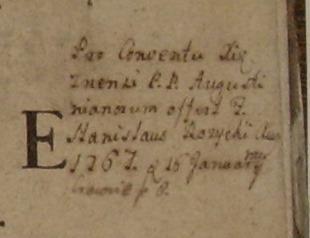 Pro Conventu Xię
znensi P. P. Augusti
nianorum offert F.
Stanislaus Rozycki
E
1767. 16 January